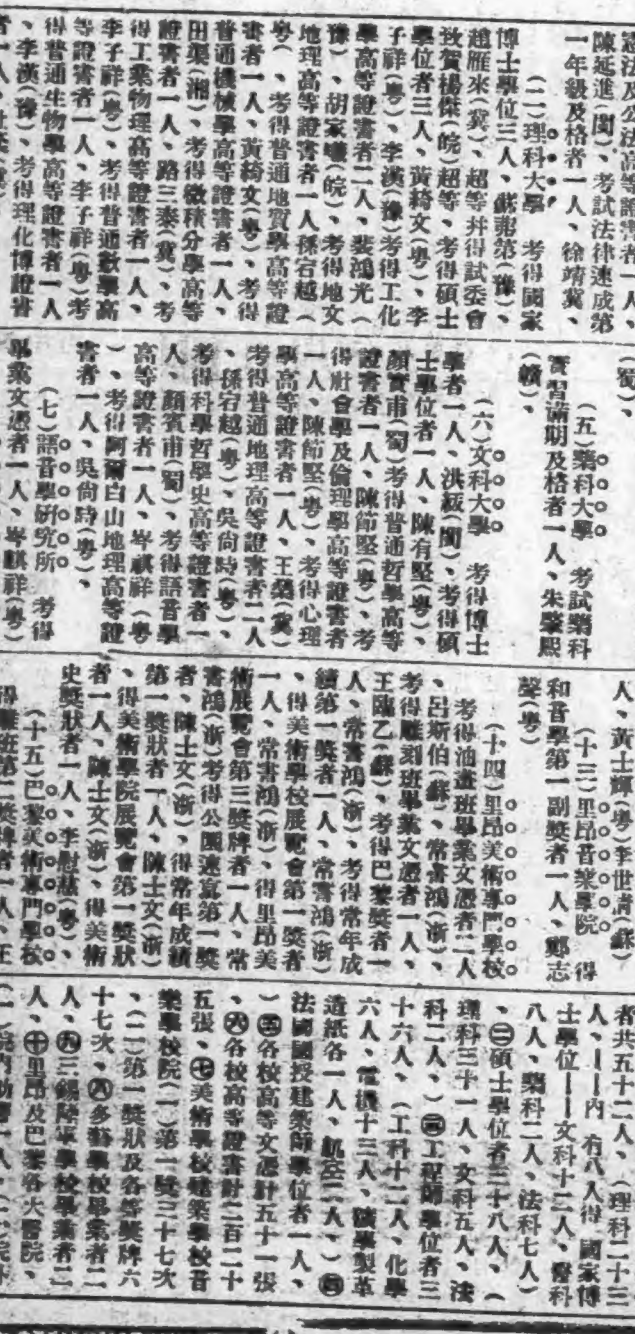 憲法及公法高等證書者一人、
陳延進(閩)、考試法律速成第
一年級及格者一人、徐靖冀、
(二)理科大學 考得國家
博士學位三人、蘇 第(豫)、
趙雁來(冀)、超等幷得試委會
致賀楊傑(皖)超等、考得碩士
學位者三人、黃綺文(粵)、李
子祥(粵)、李漢(豫)考得工化
學高等證書者二人、裴鴻光(
豫)、胡家 (皖)、考得地文
地理高等證書者一人孫宕越(
粵)、考得普通地質學高等證
書者一人、黃綺文(粵)、考得
普通機械學高等證書者一人、
田渠(湘)、考得微積分學高等
證書者一人、路三泰(冀)、考
得工業物理高等證書者一人、
李子祥(粵)、考得普通數學高
等證書者一人、李子祥(粵)考
得普通生物學高等證書者一人
、李漢(豫)、考得理化博證書
(蜀)、
(五)藥科大學 考試藥科
實習滿期及格者一人、朱肇熙
(贛)、
(六)文科大學 考得博士
學者一人、洪紱(閩)、考得碩
士學位者一人、陳有堅(粵)、
顏實甫(蜀)考得普通哲學高等
證書者一人、陳節堅(粵)、考
得社會學及倫理學高等證書者
一人、陳節堅(粵)、考得心理
學高等證書者一人、王 (冀)
考得普通地理高等證書者二人
、孫宕越(粵)、吳尙時(粵)、
考得科學哲學史高等證書者一
人、顏實甫(蜀)、考得語音學
高等證書者一人、岑麒祥(粵
)、考得阿爾白山地理高等證
書者一人、吳尙時(粵)、
(七)語音學硏究所 考得
畢業文憑者一人、岑麒祥(粵)
人、黃士輝(粵)李世淸(蘇)
(十三)里昂音樂學院 得
和音學第一副獎者一人、鄭志
聲(粵)
(十四)里昂美術專門學校
考得油畫班畢業文憑者二人
、呂斯伯(蘇)、常書鴻(浙)、
考得雕刻班畢業文憑者一人、
王臨乙(蘇)、考得巴黎獎者一
人、常書鴻(浙)、考得常年成
績第一獎者一人、常書鴻(浙)
、得美術學校展覽會第一獎者
一人、常書鴻(浙)、得里昂美
術展覽會第三獎牌者一人、常
書鴻(浙)考得公園速寫第一獎
者、陳士文(浙)、得常年成績
第一獎狀者一人、陳士文(浙)
、得美術學院展覽會第一獎狀
者一人、陳士文(浙)、得美術
史獎狀者一人、李慰慈(粵)、
(十五)巴黎美術專門學校
得 班第一獎牌者一人、王
者共五十二人、(理科二十三
人、——內 有八人得 國家博
士學位——文科十二人、醫科
八人、藥科二人、法科七人)
、㊁碩士學位者三十八人、(
理科三十一人、文科五人、法
科二人、)㊂工程師學位者三
十六人、(工科十二人、化學
六人、電機十三人、 學製革
造紙各一人、航空二人、)㊃
法國國授建築師學位者一人、
㊄各校高等文憑計五十一張
、㊅各校高等證書計二百二十
五張、㊆美術學校建築學校音
樂學校院(一)第一獎三十七次
、(二)第一獎狀及各等獎牌六
十七次、㊇多藝學校畢業者二
人、㊈三錫陸軍學校畢業者二
人、㊉里昂及巴黎各大醫院、